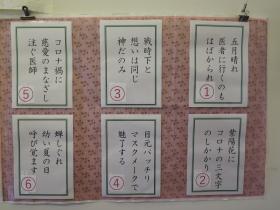 五月晴れ
医者に行くのも
はばかられ
①
紫陽花に
コロナの三文字
のしかかり
②
戦時下と
想いは同じ
神だのみ
③
目元パッチリ
マスクメークで
魅了する
④
コロナ禍に
慈愛のまなざし
注ぐ医師
⑤
蝉しぐれ
幼い夏の日
呼び覚ます
⑥